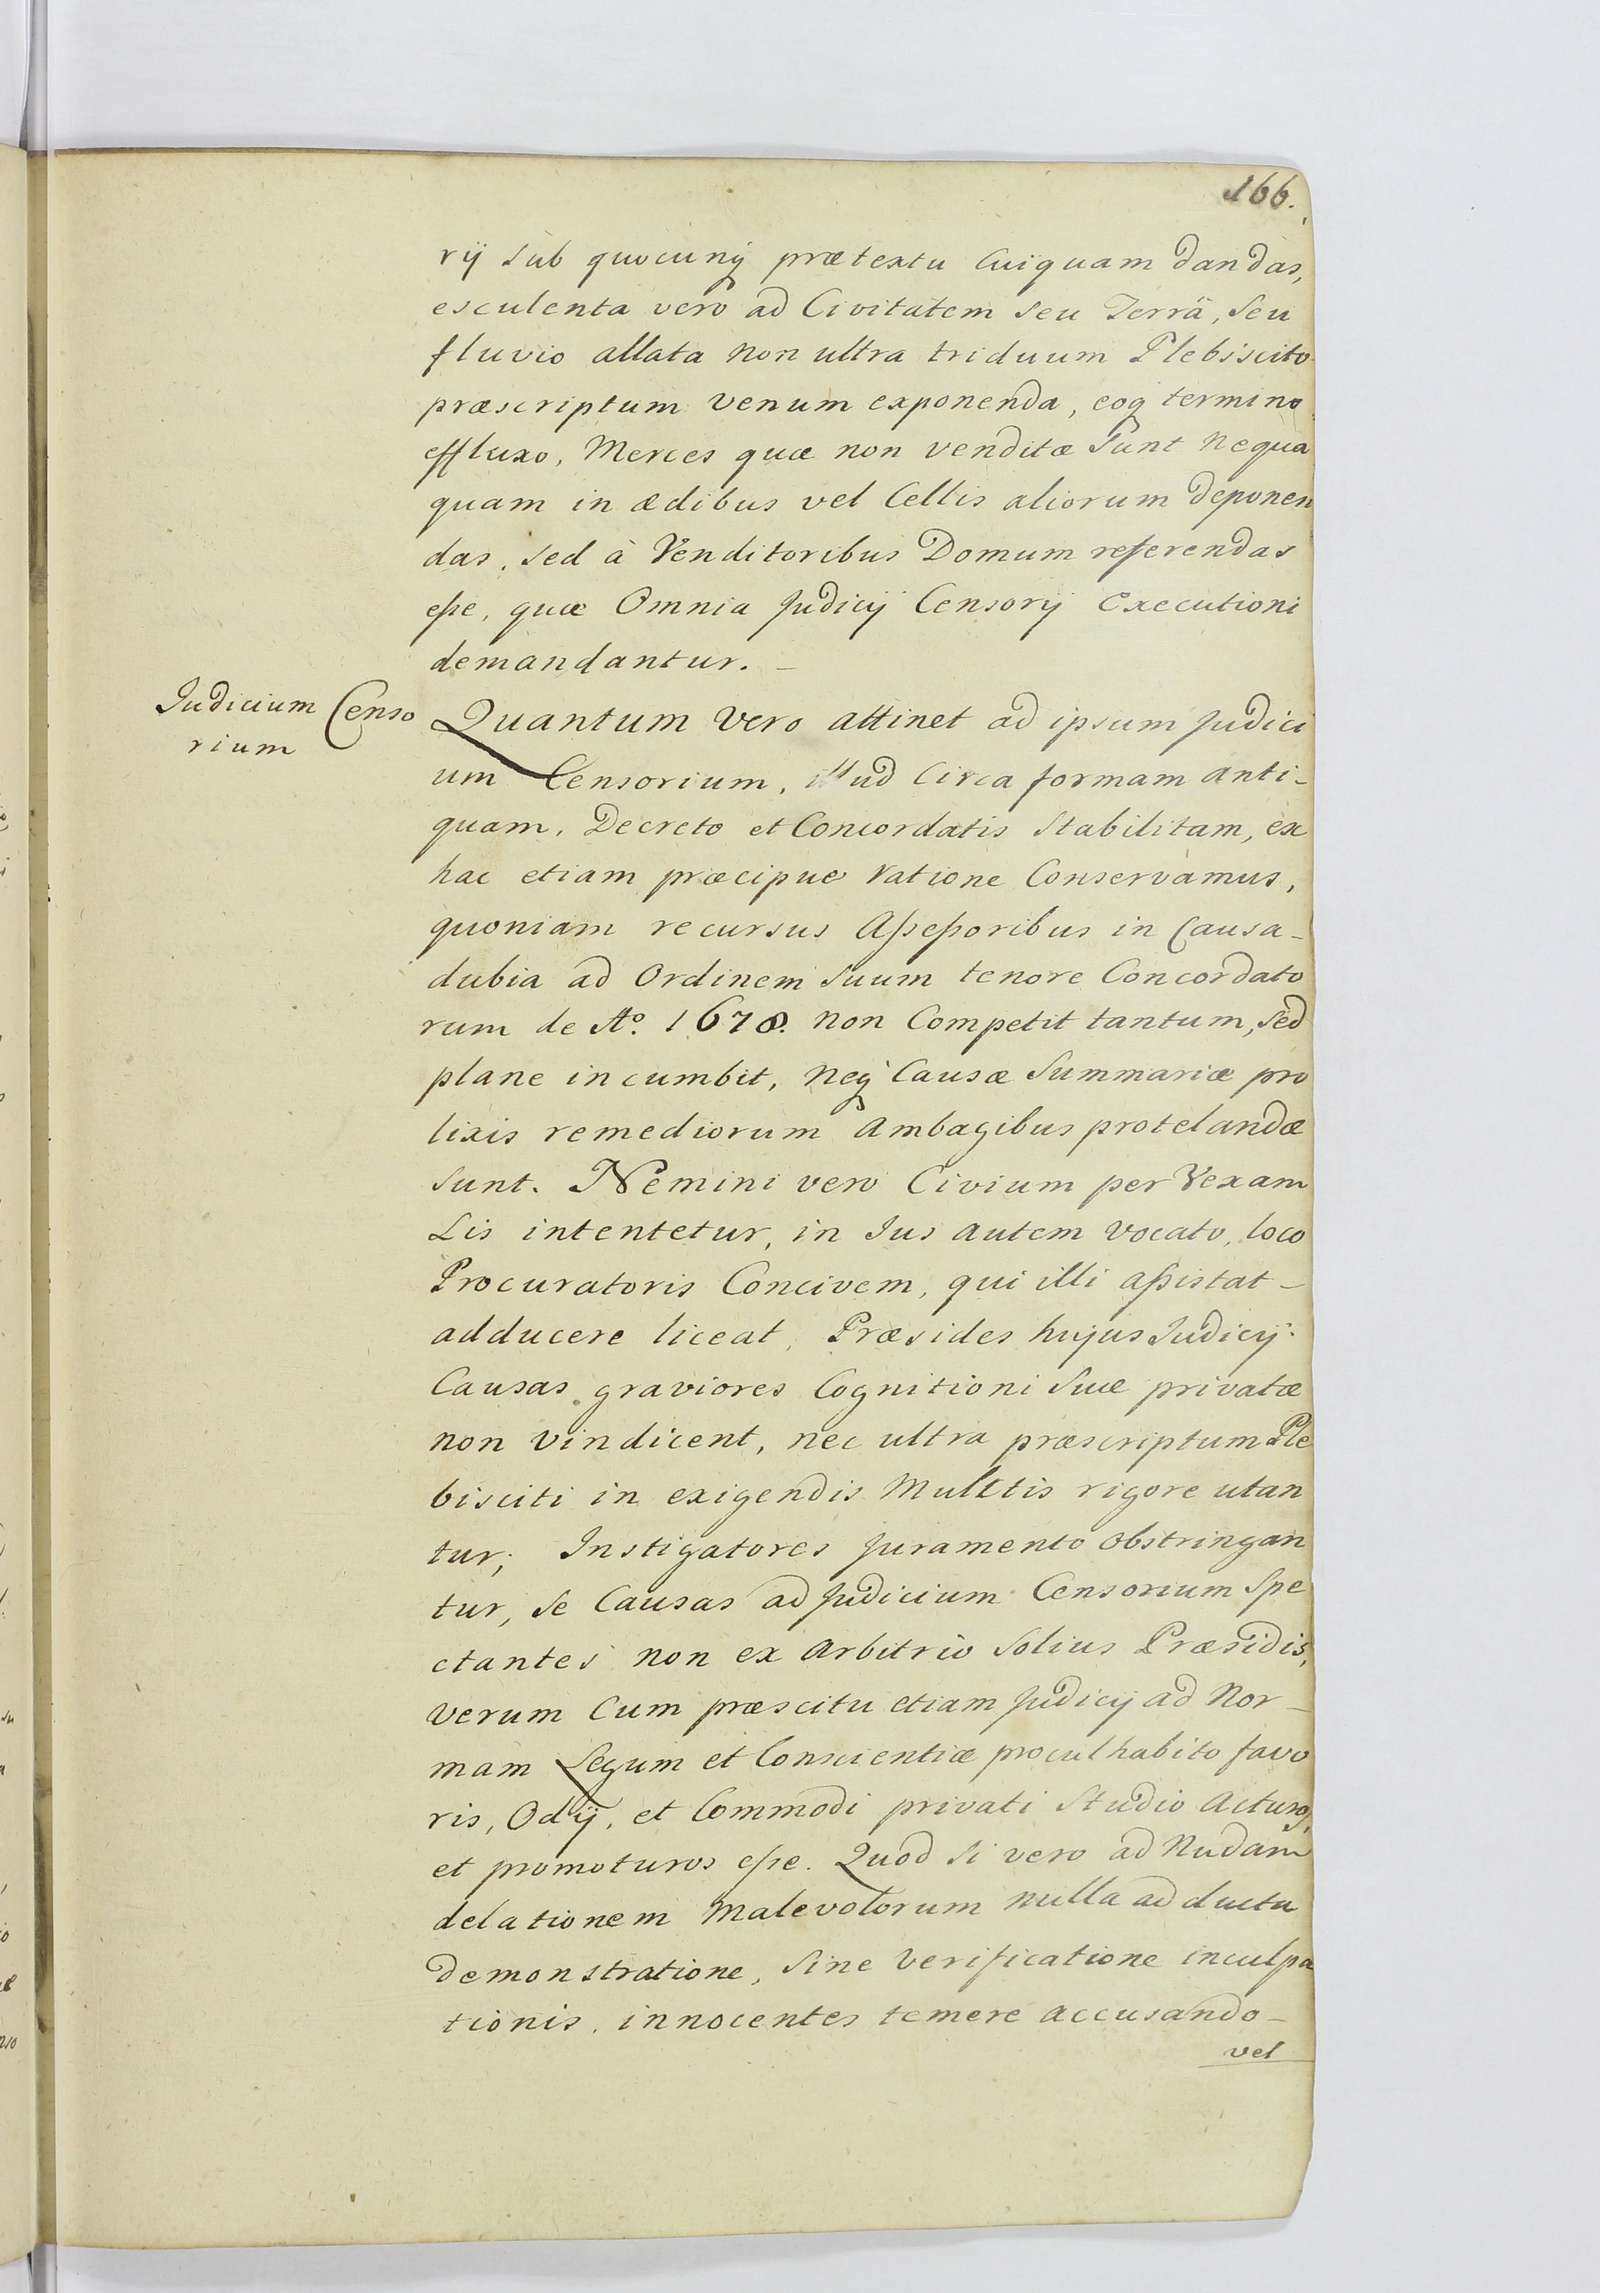 166.
rij sub quocunq prætextu Cuiquam dandas,
esculenta vero ad Civitatem seu Terrä, seu
fluvio allata non ultra triduum Plebiscito
præscriptum venum exponenda, eoq termino
effluxo, Merces quæ non venditæ sunt nequa
quam in ædibus vel Cellis aliorum deponen
das, sed à Venditoribus Domum referendas
eße, quæ Omnia Judicij Censorij Executioni
demandantur. –
Judicium Censo
rium
Quantum vero attinet ad ipsum Judici
um Censorium, illud Circa formam anti-
quam, Decreto et Concordatis Stabilitam, ex
hac etiam præcipue ratione Conservamus,
quoniam recursus Aßeßoribus in Causa-
dubia ad Ordinem suum tenore Concordato
rum de Aº. 1678. non Competit tantum, sed
plane incumbit, neq Causæ Summariæ pro
lixis remediorum ambagibus protelandæ
sunt. Nemini vero Civium per Vexam
Lis intentetur, in Jus autem vocato, loco
Procuratoris Concivem, qui illi aßistat –
adducere liceat, Præsides hujus Judicij
Causas graviores Cognitioni suæ privatæ
non vindicent, nec ultra præscriptum Ple
bisciti in exigendis Mulctis rigore utan
tur; Instigatores juramento obstringan
tur, se Causas ad Judicium Censorium Spe
ctantes non ex arbitrio solius Præsidis,
verum Cum præscitu etiam Judicij ad Nor –
mam Legum et Conscientiæ procul habito favo
ris, Odij, et Commodi privati Studio acturos,
et promoturos eße. Quod si vero ad Nudam
delationem malevolorum nulla adducta
demonstratione, sine verificatione inculpa
tionis, innocentes temere accusando –
vel